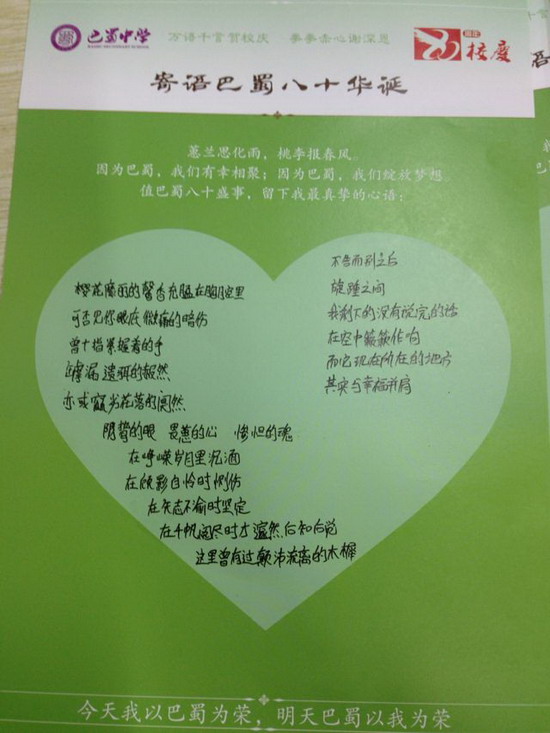 巴蜀中学
BASHU SECONDARY SCHOOL
万语千言贺校庆 拳拳赤心谢深恩
校庆
寄语巴蜀八十华诞
蕙兰思化雨，桃李报春风。
因为巴蜀，我们有幸相聚；因为巴蜀，我们绽放梦想。
值巴蜀八十盛事，留下我最真挚的心语：
雨的馨香充盈在胸腔里
可否见你眼底微痛的暗伤
曾十指紧握着的手
罅漏遗珥的赧然
亦或花落的阒然
明皙的眼 畏葸的心 惨怛的魂
在峥嵘岁月里沉湎
在顾影自怜时恻伤
在矢志不渝时坚定
在千帆阅尽时才然后知后觉
这里曾有过颠沛流离的木樨
不告而别之后
旋踵之间
我剩下的没有说完的话
在空中簌簌作响
而它现在所在的地方
其实与幸福并肩
今天我以巴蜀为荣，明天巴蜀以我为荣